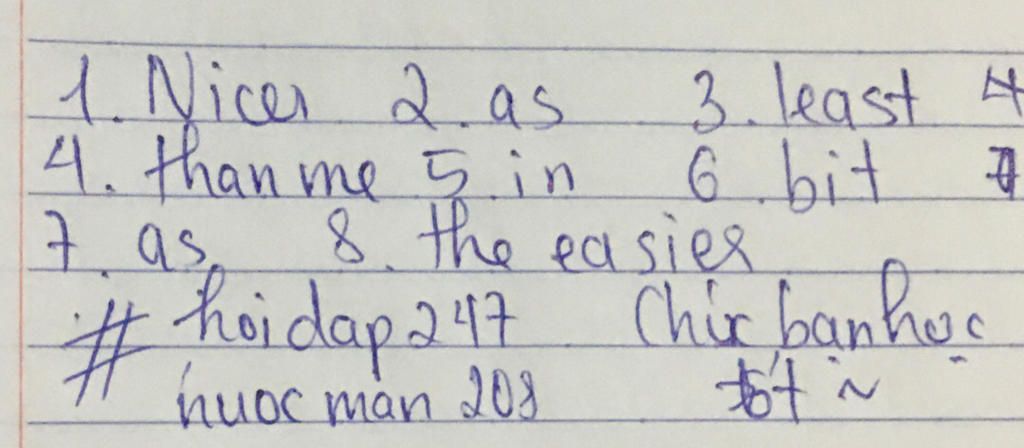 1. Nicer 2. as 3. least 4
4. than me 5. in 6. bit
7. as 8. the easier
# hoidap247 Chúc bạn học
nuocman208 tốt ~